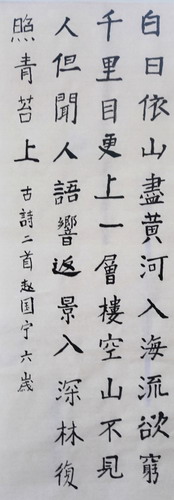 白日依山盡黃河入海流欲窮
千里目更上一層樓空山不見
人但聞人語響返景入深林復
照青苔上 古詩二首趙国宇六歲